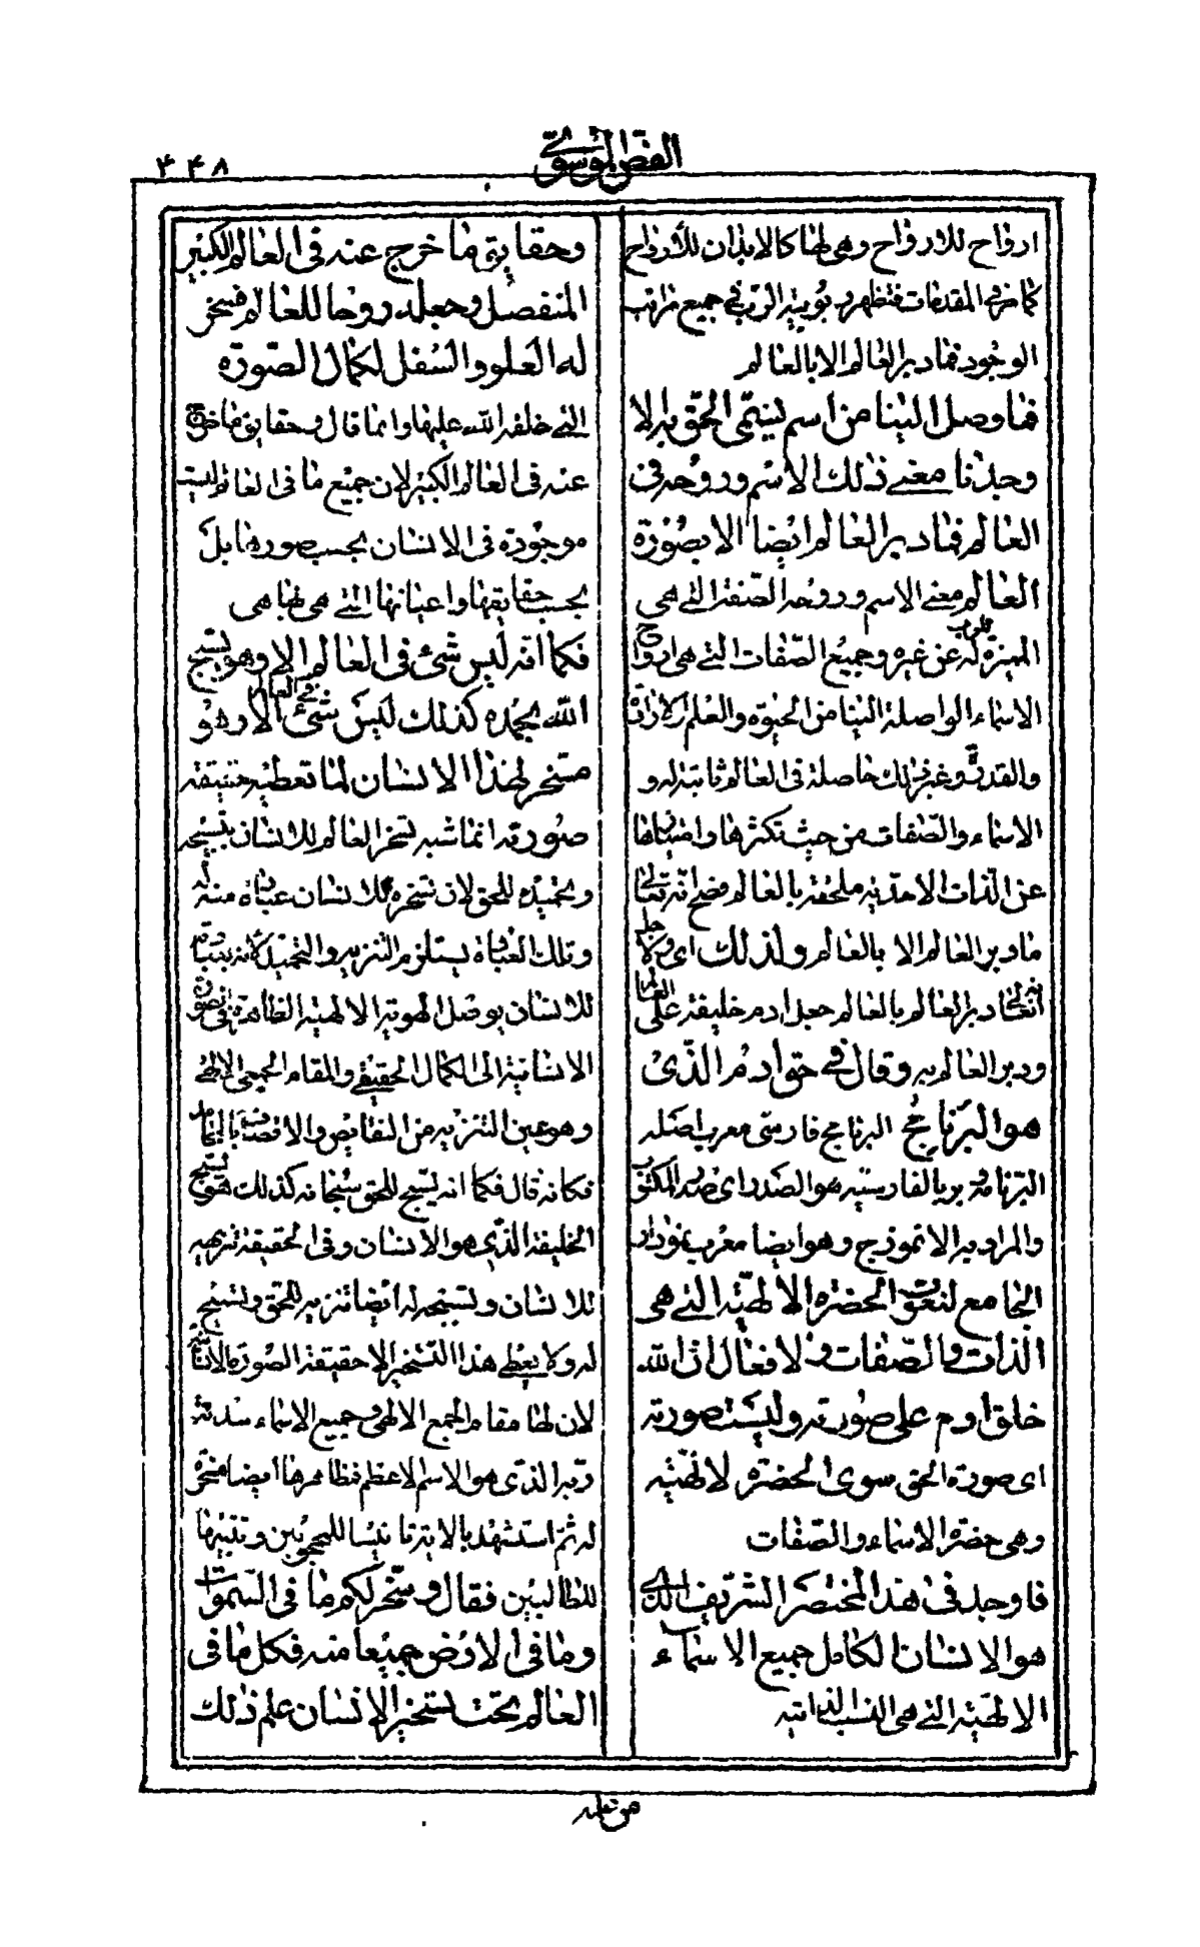 الفص الموسوي
٤٤٨
ارواح للارواح وهى لها كالابدان للأرواح
كما مر فى المقدمات فتظهر ربوبية الرب فى جميع مراتب
الوجود فما دبر العالم الا بالعالم
فما وصل الينا من اسم يسمى الحق به الا
وجدنا معنى ذلك الاسم وروحه فى
العالم فما دبر العالم ايضا الا بصورة
العالم معنى الاسم وروحه الصفة التى هى
المميزة له عن غيره وجميع الصفات التى هى ارواح
الاسماء الواصلة الينا من الحيوة والعلم والارادة
والقدرة وغير ذلك حاصلة فى العالم ثابتة له و
الاسماء والصفات من حيث تكثرها وامتيازها
عن الذات الاحدية ملحقة بالعالم فصح انه تعالى
ما دبر العالم الا بالعالم ولذلك اى ولاجل
انه تعالى دبر العالم بالعالم جعل ادم خليفة على العالم
ودبر العالم به وقال فى حق ادم الذى
هو البرنامج البرنامج فارسى معرب اصله
البرنامه وبر بالفارسية هو الصدر اى صدر المكتوب
والمراد به الانموذج وهو ايضا معرب نمودار
الجامع لنعوت الحضرة الالهية التى هى
الذات والصفات والافعال ان الله
خلق ادم على صورته وليست صورته
اى صورة الحق سوى الحضرة الالهية
وهى حضرة الاسماء والصفات
فاوجد فى هذا المختصر الشريف الذى
هو الانسان الكامل جميع الاسماء
الالهية التى هى النسب الذاتية
وحقايق ما خرج عنه فى العالم الكبير
المنفصل وجعله روحا للعالم فسخر
له العلو والسفل لكمال الصورة
التى خلقه الله عليها وانما قال وحقايق ما خرج
عنه فى العالم الكبير لان جميع ما فى العالم ليست
موجودة فى الانسان بحسب صورها بل
بحسب حقايقها واعيانها التى هى بها هى
فكما انه ليس شئ فى العالم الا وهو يسبح
الله بحمده كذلك ليس شئ فى العالم الا وهو
مسخر لهذا الانسان لما تعطيه حقيقة
صورته انما شبه تسخر العالم للانسان بتسبيحه
وتحميده للحق لان تسخره للانسان عبادة منه له
وتلك العبادة يستلزم التنزيه والتحميد لانه
للانسان يوصل الهوية الالهية الظاهرة فى
الانسانية الى الكمال الحقيقى والمقام الجمعى الالهى
وهو عين التنزيه من النقايص والاتصاف بالمحامد
فكانه قال فكما انه يسبح للحق سبحانه كذلك هو يسبح
الخليفة الذى هو الانسان وفى الحقيقة تنزيهه
للانسان وتسبيحه له ايضا تنزيه للحق وتسبيح
له ولا يعطى هذا التسخير الا حقيقة الصورة الانسانية
لان لها مقام الجمع الالهى وجميع الاسماء سدنة
ربه الذى هو الاسم الاعظم فمظاهرها ايضا مسخرة
له ثم استشهد بالاية تانيسا للمحجوبين وتنبيها
للطالبين فقال وسخر لكم ما فى السموات
وما فى الارض جميعا منه فكل ما فى
العالم تحت تسخير الانسان علم ذلك
من علمه